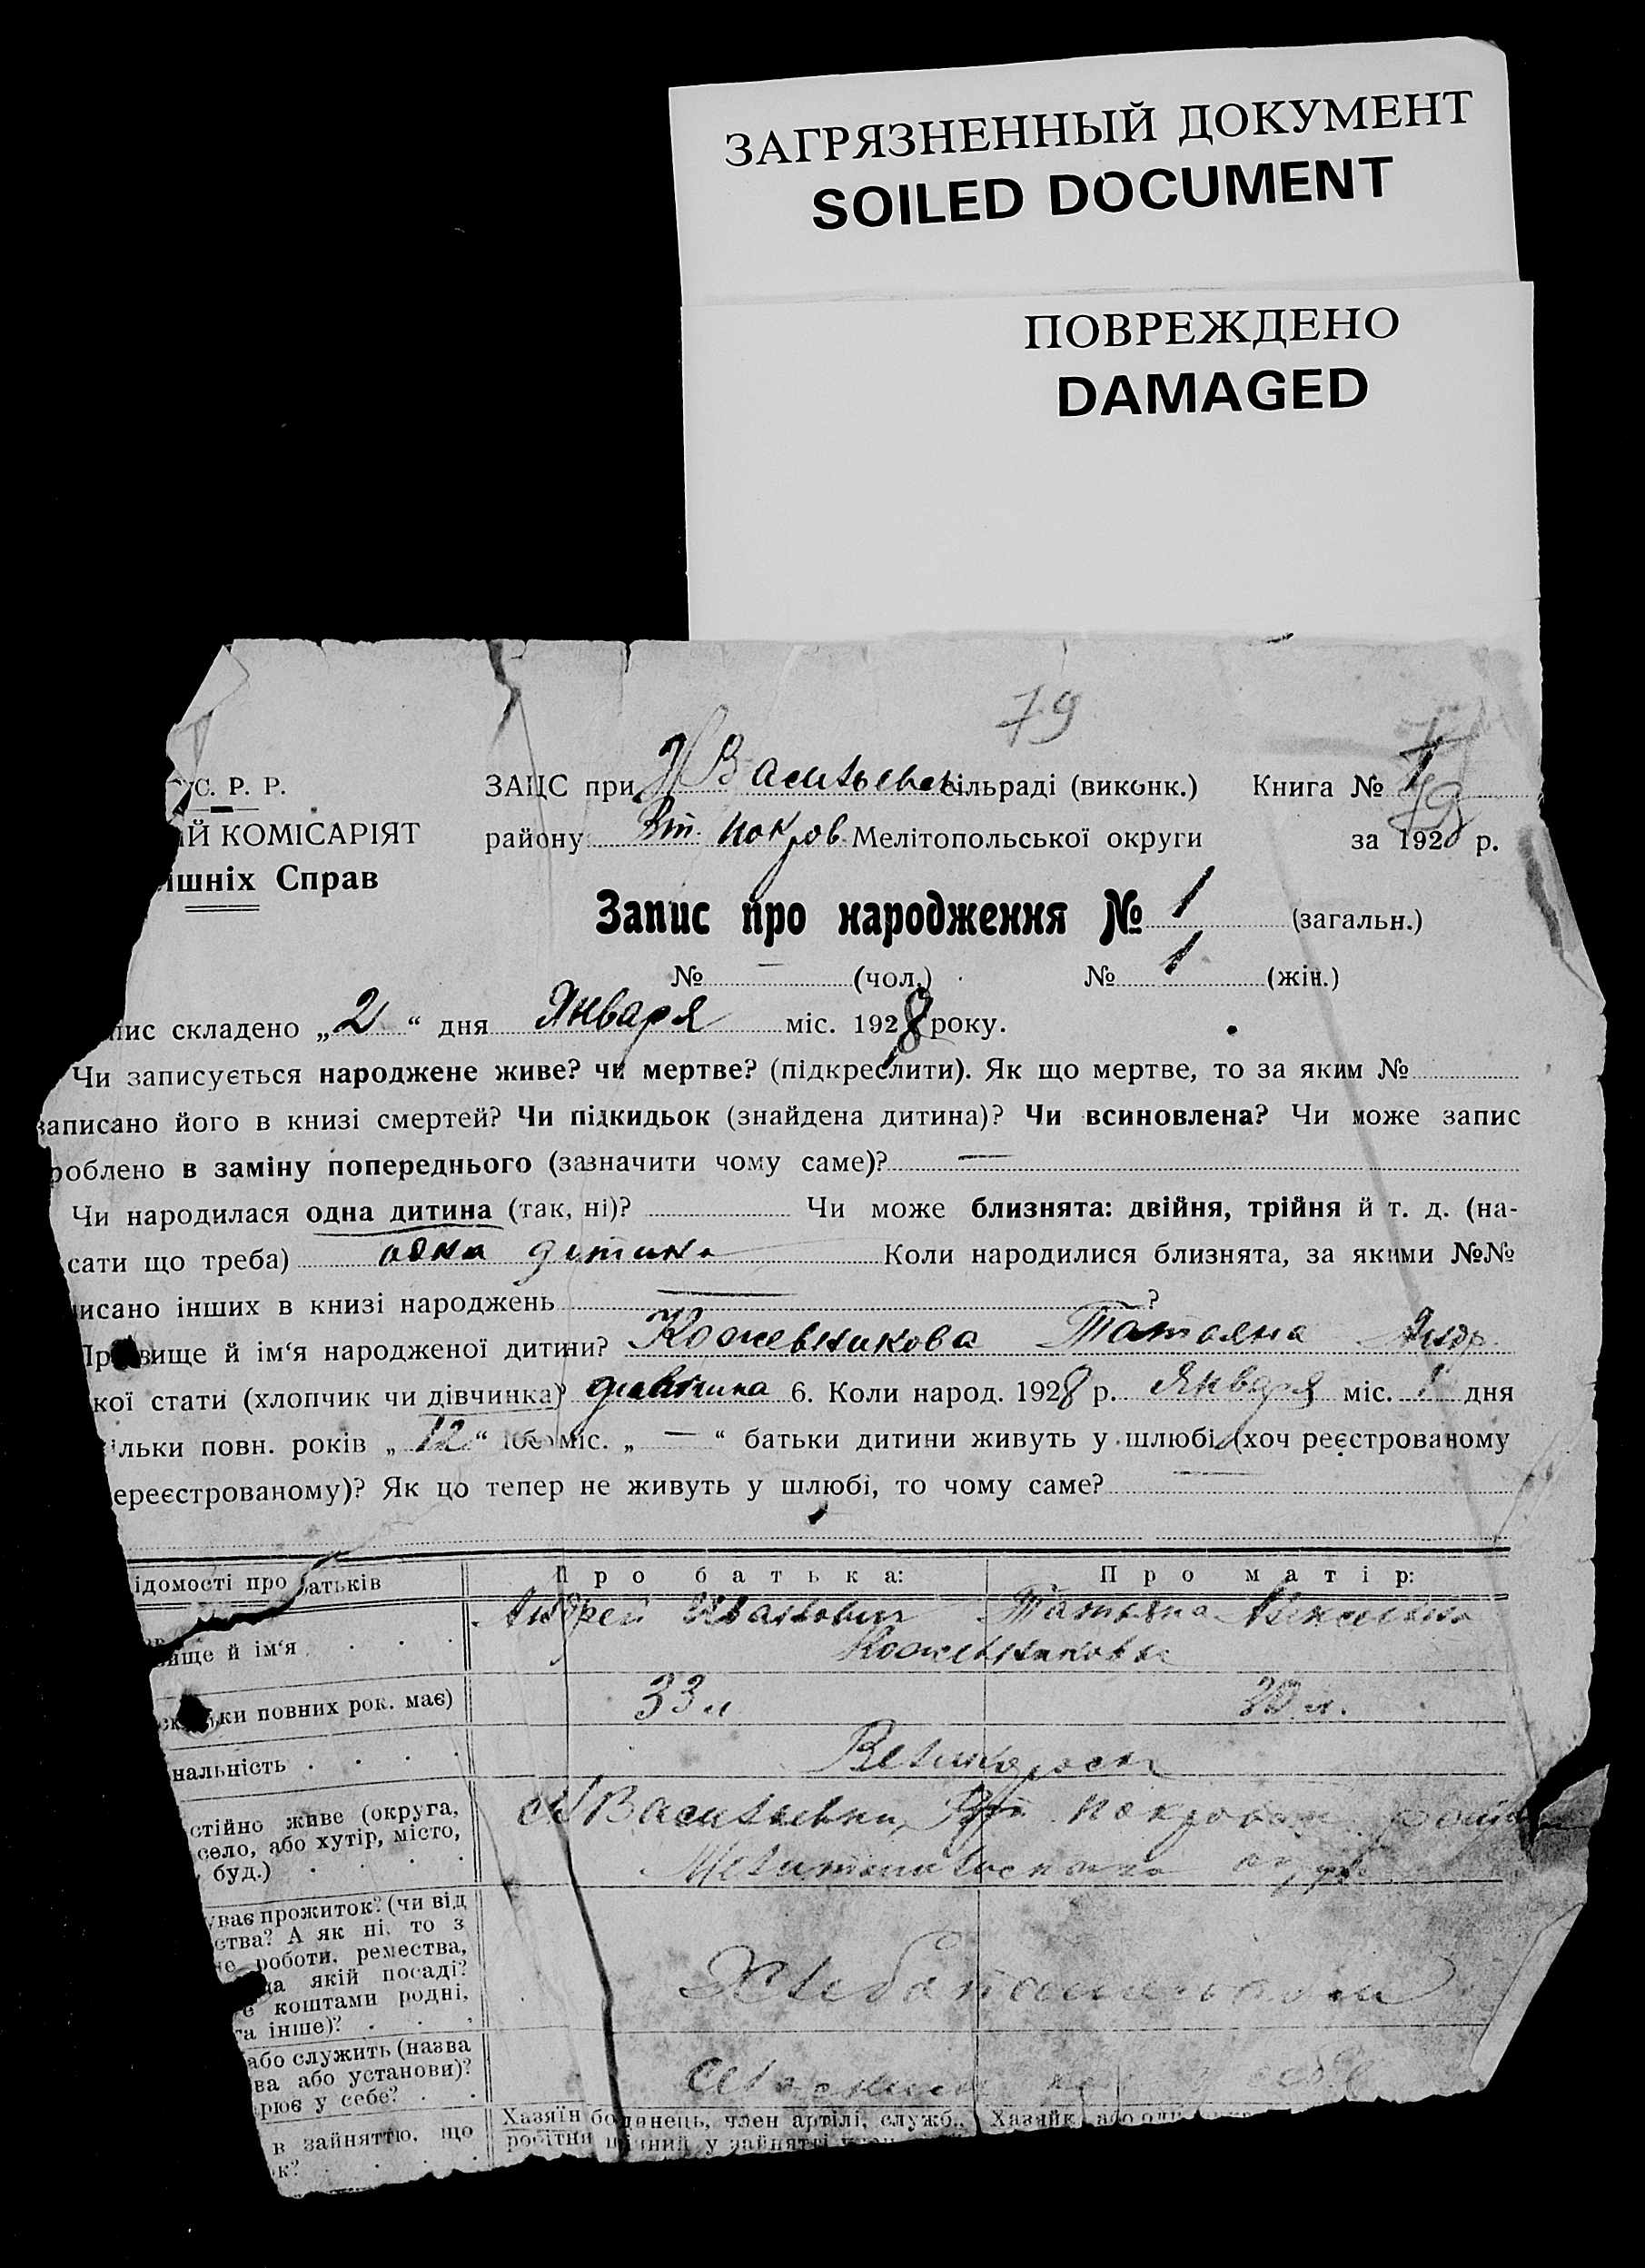 ЗАГРЯЗНЕННЫЙ ДОКУМЕНТ
SOILED DOCUMENT
ПОВРЕЖДЕНО
DAMAGED
79
С. Р. Р.
ЗАЦС при Н Васильевс сільраді (виконк.) Книга № 1
ІЙ КОМІСАРІЯТ
району Вт. Покров. Мелітопольської округи за 1928 р.
ішніх Справ
Запис про народження № 1 (загальн.)
№ — (чол.) № 1 (жін.)
пис складено „2“ дня Января міс. 1928 року.
Чи записується народжене живе? чи мертве? (підкреслити). Як що мертве, то за яким №
записано його в книзі смертей? Чи підкидьок (знайдена дитина)? Чи всиновлена? Чи може запис
роблено в заміну попереднього (зазначити чому саме)? —
Чи народилася одна дитина (так, ні)? Чи може близнята: двійня, трійня й т. д. (на-
сати що треба) одна детина Коли народилися близнята, за якими №№
исано інших в книзі народжень — ?
Прзвище й ім‘я народженої дитини? Кожевникова Татьяна Андр.
кої стати (хлопчик чи дівчинка)? 6. Коли народ. 1928 р. Января міс. 1 дня
ільки повн. років „12“ або міс. „—“ батьки дитини живуть у шлюбі (хоч реєстрованому
ереєстрованому)? Як що тепер не живуть у шлюбі, то чому саме? —
ідомості про батьків Про батька: Про матір:
Андрей Иванович Татьяна Алексеевна
вище й ім‘я Кожевниковы
скільки повних рок. має) 33 л 30 л.
нальність Великоросы
стійно живе (округа, с Н Васильевки, Вт Покровск.
село, або хутір, місто,
буд.)
ває прожиток? (чи від
ства? А як ні, то з
роботи, ремества,
на якій посаді?
коштами родні,
та інше)?
або служить (назва
ва або установи)?
рює у себе?
в зайняттю, що Хазяїн одинець, член артілі, служб., Хазяйк або оди
робітни
к?